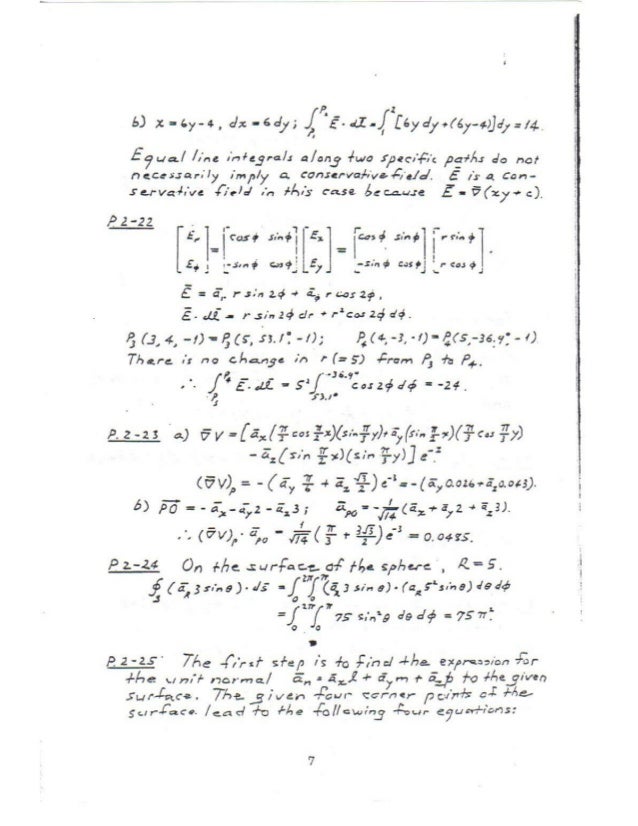 b) x = 6y-4, dx = 6 dy; ∫_{P₁}^{P₂} Ē · dl̄ = ∫₁² [6y dy + (6y-4)] dy = 14.
Equal line integrals along two specific paths do not
necessarily imply a conservative field. Ē is a con-
servative field in this case because Ē = ∇̄(xy + c).
P.2-22
[E_r; E_φ] = [cos φ sin φ; -sin φ cos φ] [E_x; E_y] = [cos φ sin φ; -sin φ cos φ] [r sin φ; r cos φ].
Ē = ā_r r sin 2φ + ā_φ r cos 2φ,
Ē · dl̄ = r sin 2φ dr + r² cos 2φ dφ.
P₃(3, 4, -1) = P₃(5, 53.1°, -1); P₄(4, -3, -1) = P₄(5, -36.9°, -1)
There is no change in r (= 5) from P₃ to P₄.
∴ ∫_{P₃}^{P₄} Ē · dl̄ = 5² ∫_{53.1°}^{-36.9°} cos 2φ dφ = -24.
P.2-23 a) ∇̄V = [ā_x (π/2 cos π/2 x)(sin π/3 y) + ā_y (sin π/2 x)(π/3 cos π/3 y)
- ā_z (sin π/2 x)(sin π/3 y)] e^{-z}
(∇̄V)_P = -(ā_y π/6 + ā_z √3/2) e^{-3} = -(ā_y 0.026 + ā_z 0.043).
b) PO = -ā_x - ā_y 2 - ā_z 3; ā_PO = -1/√14 (ā_x + ā_y 2 + ā_z 3).
∴ (∇̄V)_P · ā_PO = 1/√14 (π/3 + 3√3/2) e^{-3} = 0.0485.
P.2-24 On the surface of the sphere, R = 5.
∮_S (ā_R 3 sin θ) · ds̄ = ∫₀^{2π} ∫₀^π (ā_R 3 sin θ) · (a_R 5² sin θ) dθ dφ
= ∫₀^{2π} ∫₀^π 75 sin² θ dθ dφ = 75 π².
P.2-25 The first step is to find the expression for
the unit normal ā_n = ā_x l + ā_y m + ā_z p to the given
surface. The given four corner points of the
surface lead to the following four equations:
7